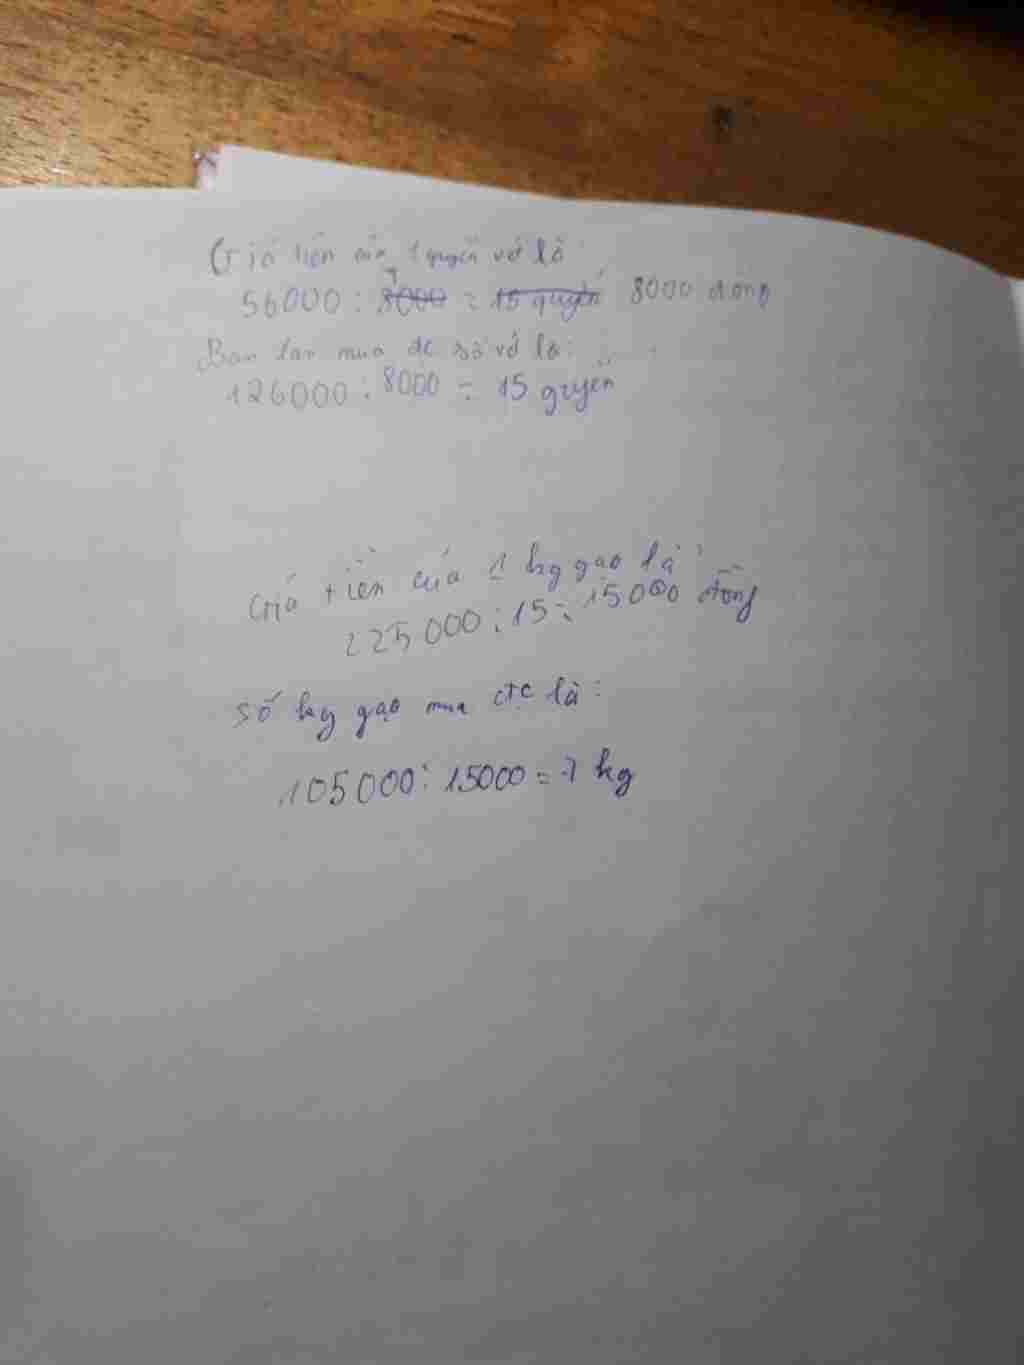 Giá tiền của 1 quyển vở là
56000 : 7 8000 = 15 quyển 8000 đồng
Bạn lan mua đc số vở là:
126000 : 8000 = 15 quyển
Giá tiền của 1 kg gạo là:
225000 : 15 = 15000 đồng
số kg gạo mua đc là:
105000 : 15000 = 7 kg